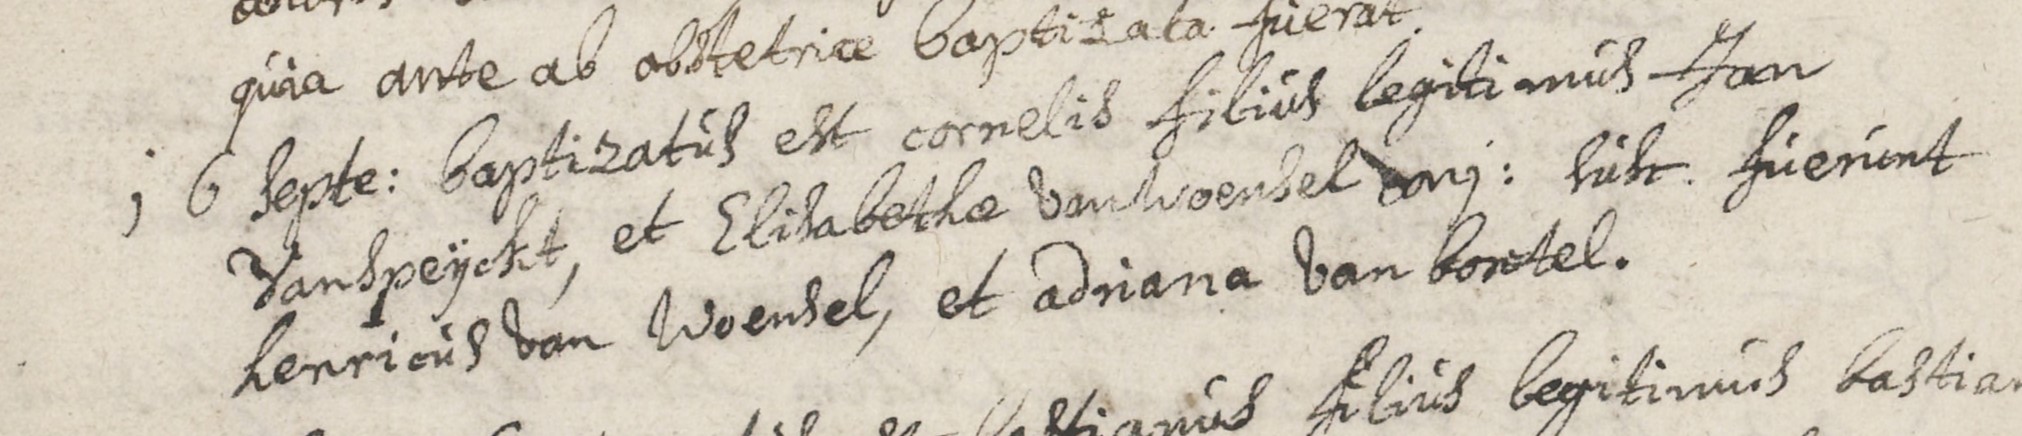 quia ante ab obstetrice baptizata fuerat.
j 6 septe: baptizatus est cornelis filius legitimus Jan
Vanspeÿckt, et Elisabethae van woensel conj: sust. fuerunt
henricus van Woensel, et adriana van boxtel.
filius legitimus bastian